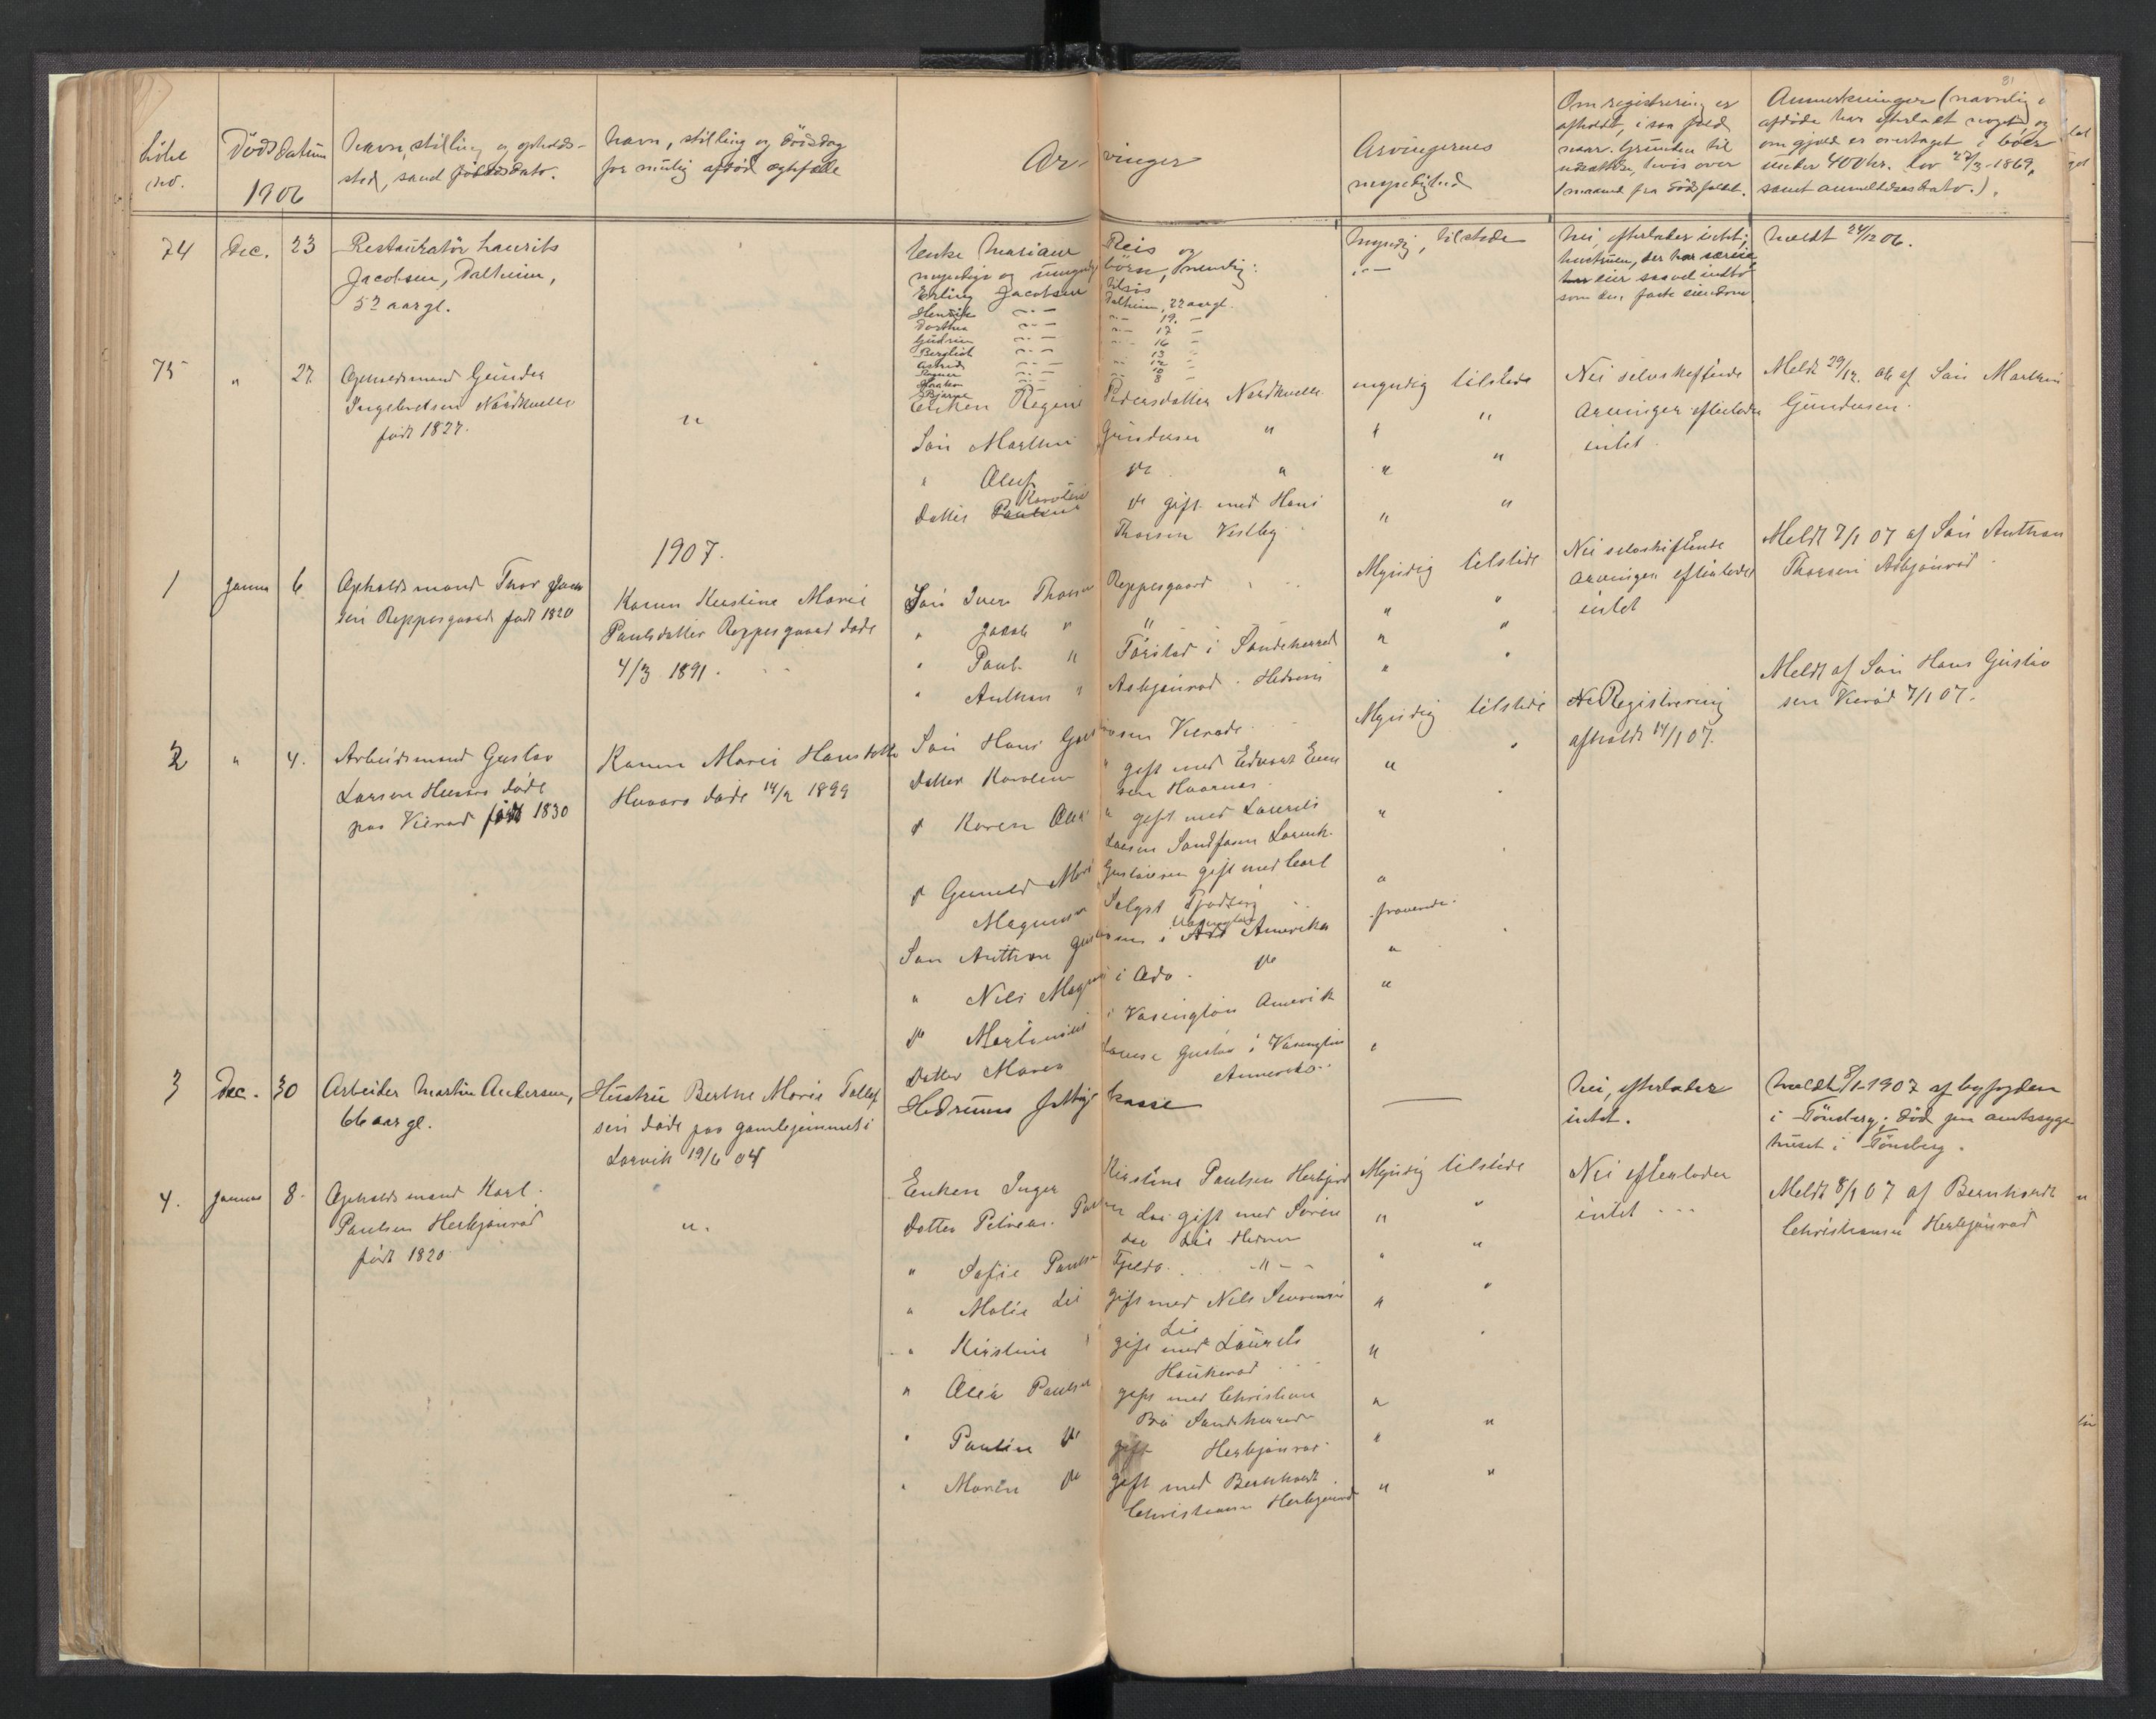 31
Løbe no.
Dødsdatum 1906
Navn, stilling og opholds-
sted, samt fødselsdato.
Navn, stilling og dødsdag
for mulig afdød ægtefælle
Arvinger
Arvingernes
myndighed
Om registrering er
afholdt, i saa fald
naar. Grunden til
udsættelse, hvis over
1 maaned fra dødsfaldet.
Anmerkninger (navnlig
afdøde har efterladt noget og
om gjæld er overtaget i boer
under 400 kr. lov 27/3 1869,
samt anmeldelsesdato.)
74 Dec. 23 Restauratør Laurits
Jacobsen, Dalheim,
52 aar gl.
Enke Mariane Reis og
myndige og umyndige børn, nemlig:
Erling Jacobsen
Dalheim, 22 aar gl.
Henrik 19
Dorthea 17
Gudrun 16
Bergliot 13
Astrid 12
Ragnar 10
Haakon 8
Bjarne
Myndig, tilstede
Nei, efterlader intet;
hustruen, der har særeie
eier saavel indbo
som den faste eiendom
Meldt 24/12 06.
75 " 27 Opholdsmand Gunder
Ingebretsen Nordkvelle
født 1827.
"
Enken Regine Pedersdatter Nordkvelle
Søn Martin Gundersen "
" Oluf do "
Datter Karoline do gift med Hans
Thorsen Vestby
myndig tilstede
" "
" "
" "
Nei selvskiftende
arvinger efterlader
intet
Meldt 29/12. 06 af Søn Martin
Gundersen.
1907.
1 Januar 6 Opholdsmand Thor Jacob
sen Reppesgaard født 1820
Karen Kirstine Marie
Paulsdatter Reppesgaard døde
4/3 1891.
Søn Iver Thorsen Reppesgaard
" Jacob " "
" Paul " Førstad i Sandeherred
" Anthon " Asbjønrød Hedrum
Myndig tilstede
" "
" "
" "
Nei selvskiftende
arvinger efterlader
intet
Meldt 7/1 07 af Søn Anthon
Thorsen Asbjønrød
2 " 4. Arbeidsmand Gustav
Larsen Huvaro døde
paa Vierød født 1830
Karen Marie Hansdatter
Huvaro døde 14/2 1899
Søn Hans Gustavsen Vierød
Datter Karoline " gift med Edvart Even
sen Haarnes
do Karen Olea " gift med Laurits
Larsen Sandfaren Larvik
do Gunild Marie Gustavsen gift med Carl
Magnus Selgst Tjødling
Søn Anthon Gustavsen i Vasington Amerika
" Nils Magnus i Ada do
do Martinius i Vasington Amerika
Datter Maren Lovise Gustav i Vasington
Amerika.
Myndig tilstede
"
"
"
fraværende
"
"
"
Registrering
afholdt 14/1 07.
Meldt af Søn Hans Gustav
sen Vierød 7/1 07.
3 Dec. 30 Arbeider Martin Andersen,
66 aar gl.
Hustru Berthe Marie Tollef
sen døde paa gamlehjemmet i
Larvik 19/6 04
Hedrums fattigkasse
Nei, efterlader
intet.
Meldt 8/1 1907 af byfogden
i Tønsberg; død paa amtssyge
huset i Tønsberg.
4. Januar 8. Opholdsmand Karl
Paulsen Herbjønrød
født 1820
"
Enken Inger Kirstine Paulsen Herbjønrød
Datter Petrea Paulsen Lie gift med Søren
Lie Hedrum
" Sofie Paulsen -"-
" Malie Lie gift med Nils
Lie
" Kirstine gift med Laurits
Haukerød
" Olea Paulsen gift med Christian
Bø Sandeherred
" Pauline do gift Herbjønrød
" Maren do gift med Bernhardt
Christiansen Herbjønrød
Myndig tilstede
" "
" "
" "
"
"
" "
" "
Nei efterlader
intet
Meldt 8/1 07 af Bernhardt
Christiansen Herbjønrød